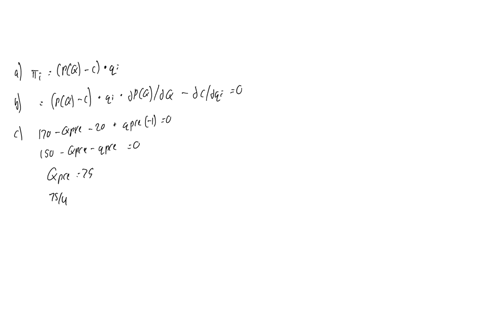 a) πi : (P(Q) - c) • qi
b) = (P(Q) - c) • qi • ∂P(Q)/∂Q - ∂c/∂qi = 0
c) 170 - Qpre - 20 • qpre (-1) = 0
150 - Qpre - qpre = 0
Qpre = 75
75/4